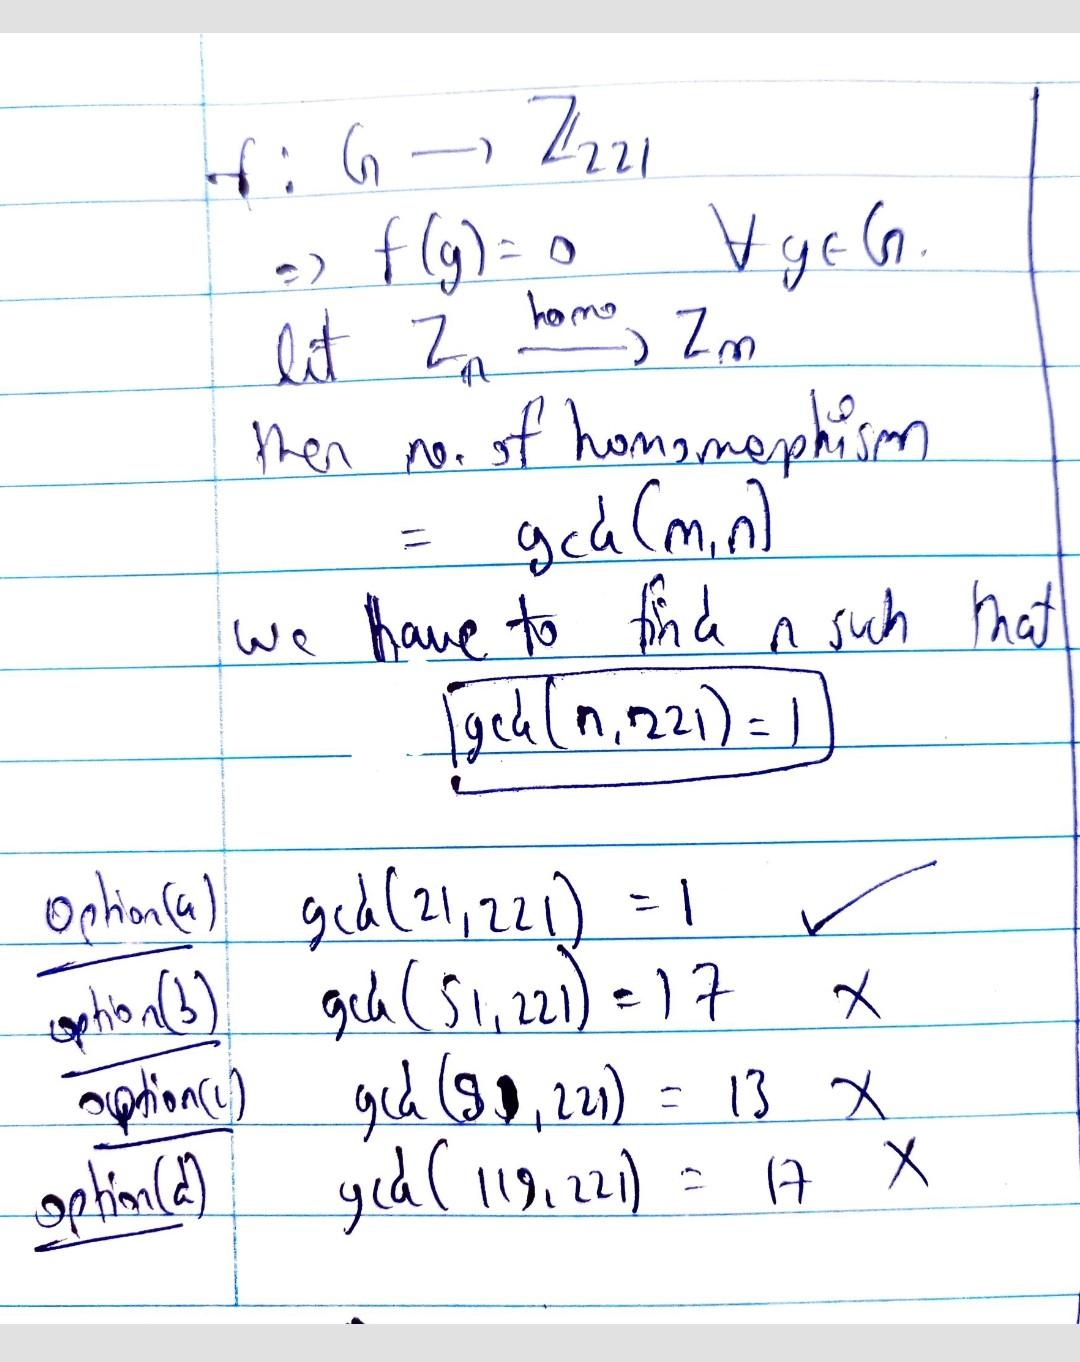 f : G → ℤ₂₂₁
=> f(g) = 0 ∀ g ∈ G.
let Zₙ homo→ Zₘ
then no. of homomorphism
= gcd(m,n)
we have to find n such that
gcd(n, 221) = 1
option(a) gcd(21, 221) = 1 ✓
option(b) gcd(51, 221) = 17 X
option(c) gcd(91, 221) = 13 X
option(d) gcd(119, 221) = 17 X